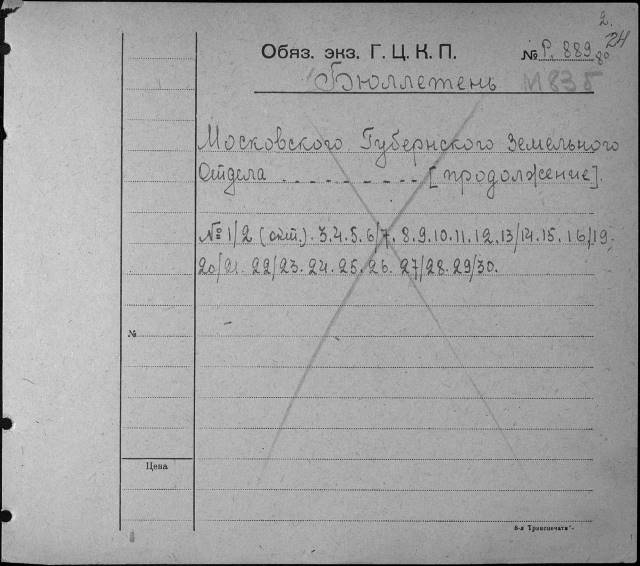 2.
24
Обяз. экз. Г. Ц. К. П. № Р. 889 8º
Бюллетень М83б
Московского Губернского Земельного
Отдела . - - - - - - - - [продолжение].
№ 1/2 (окт.). 3.4.5.6/7. 8.9.10.11.12.13/14.15.16/19.
20/21. 22/23. 24. 25. 26. 27/28. 29/30.
№
Цена
6-я Транспечати